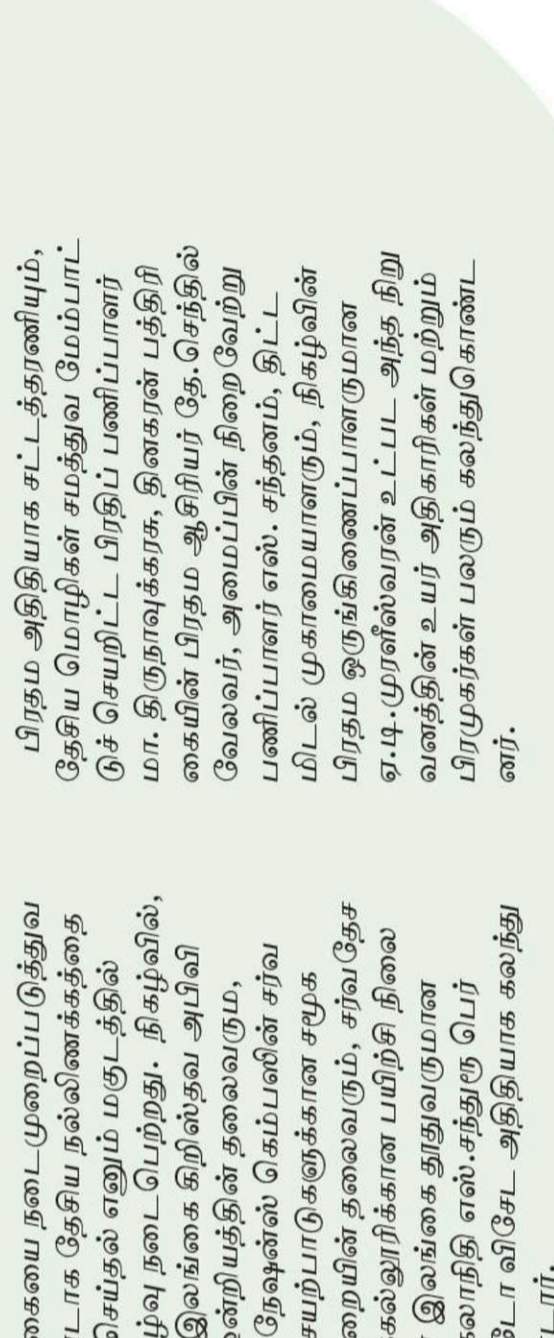 கையை நடைமுறைப்படுத்துவ
டாக தேசிய நல்லிணக்கத்தை
செய்தல் எனும் மகுடத்தில்
ழ்வு நடைபெற்றது. நிகழ்வில்,
இலங்கை கிறிஸ்தவ அபிவி
ன்றியத்தின் தலைவரும்,
நேஷன்ஸ் கெம்பஸின் சர்வ
சயற்பாடுகளுக்கான சமூக
றையின் தலைவரும், சர்வதேச
கல்லூரிக்கான பயிற்சி நிலை
இலங்கை தூதுவருமான
லாநிதி எஸ்.சந்துரு பெர்
டோ விசேட அதிதியாக கலந்து
டார்.
பிரதம அதிதியாக சட்டத்தரணியும்,
தேசிய மொழிகள் சமத்துவ மேம்பாட்
டுச் செயறிட்ட பிரதிப் பணிப்பாளர்
மா. திருநாவுக்கரசு, தினகரன் பத்திரி
கையின் பிரதம ஆசிரியர் தே.செந்தில்
வேலவர், அமைப்பின் நிறைவேற்று
பணிப்பாளர் எஸ். சந்தனம், திட்ட
மிடல் முகாமையாளரும், நிகழ்வின்
பிரதம ஒருங்கிணைப்பாளருமான
ஏ.டி.முரளீஸ்வரன் உட்பட அந்த நிறு
வனத்தின் உயர் அதிகாரிகள் மற்றும்
பிரமுகர்கள் பலரும் கலந்துகொண்ட
னர்.